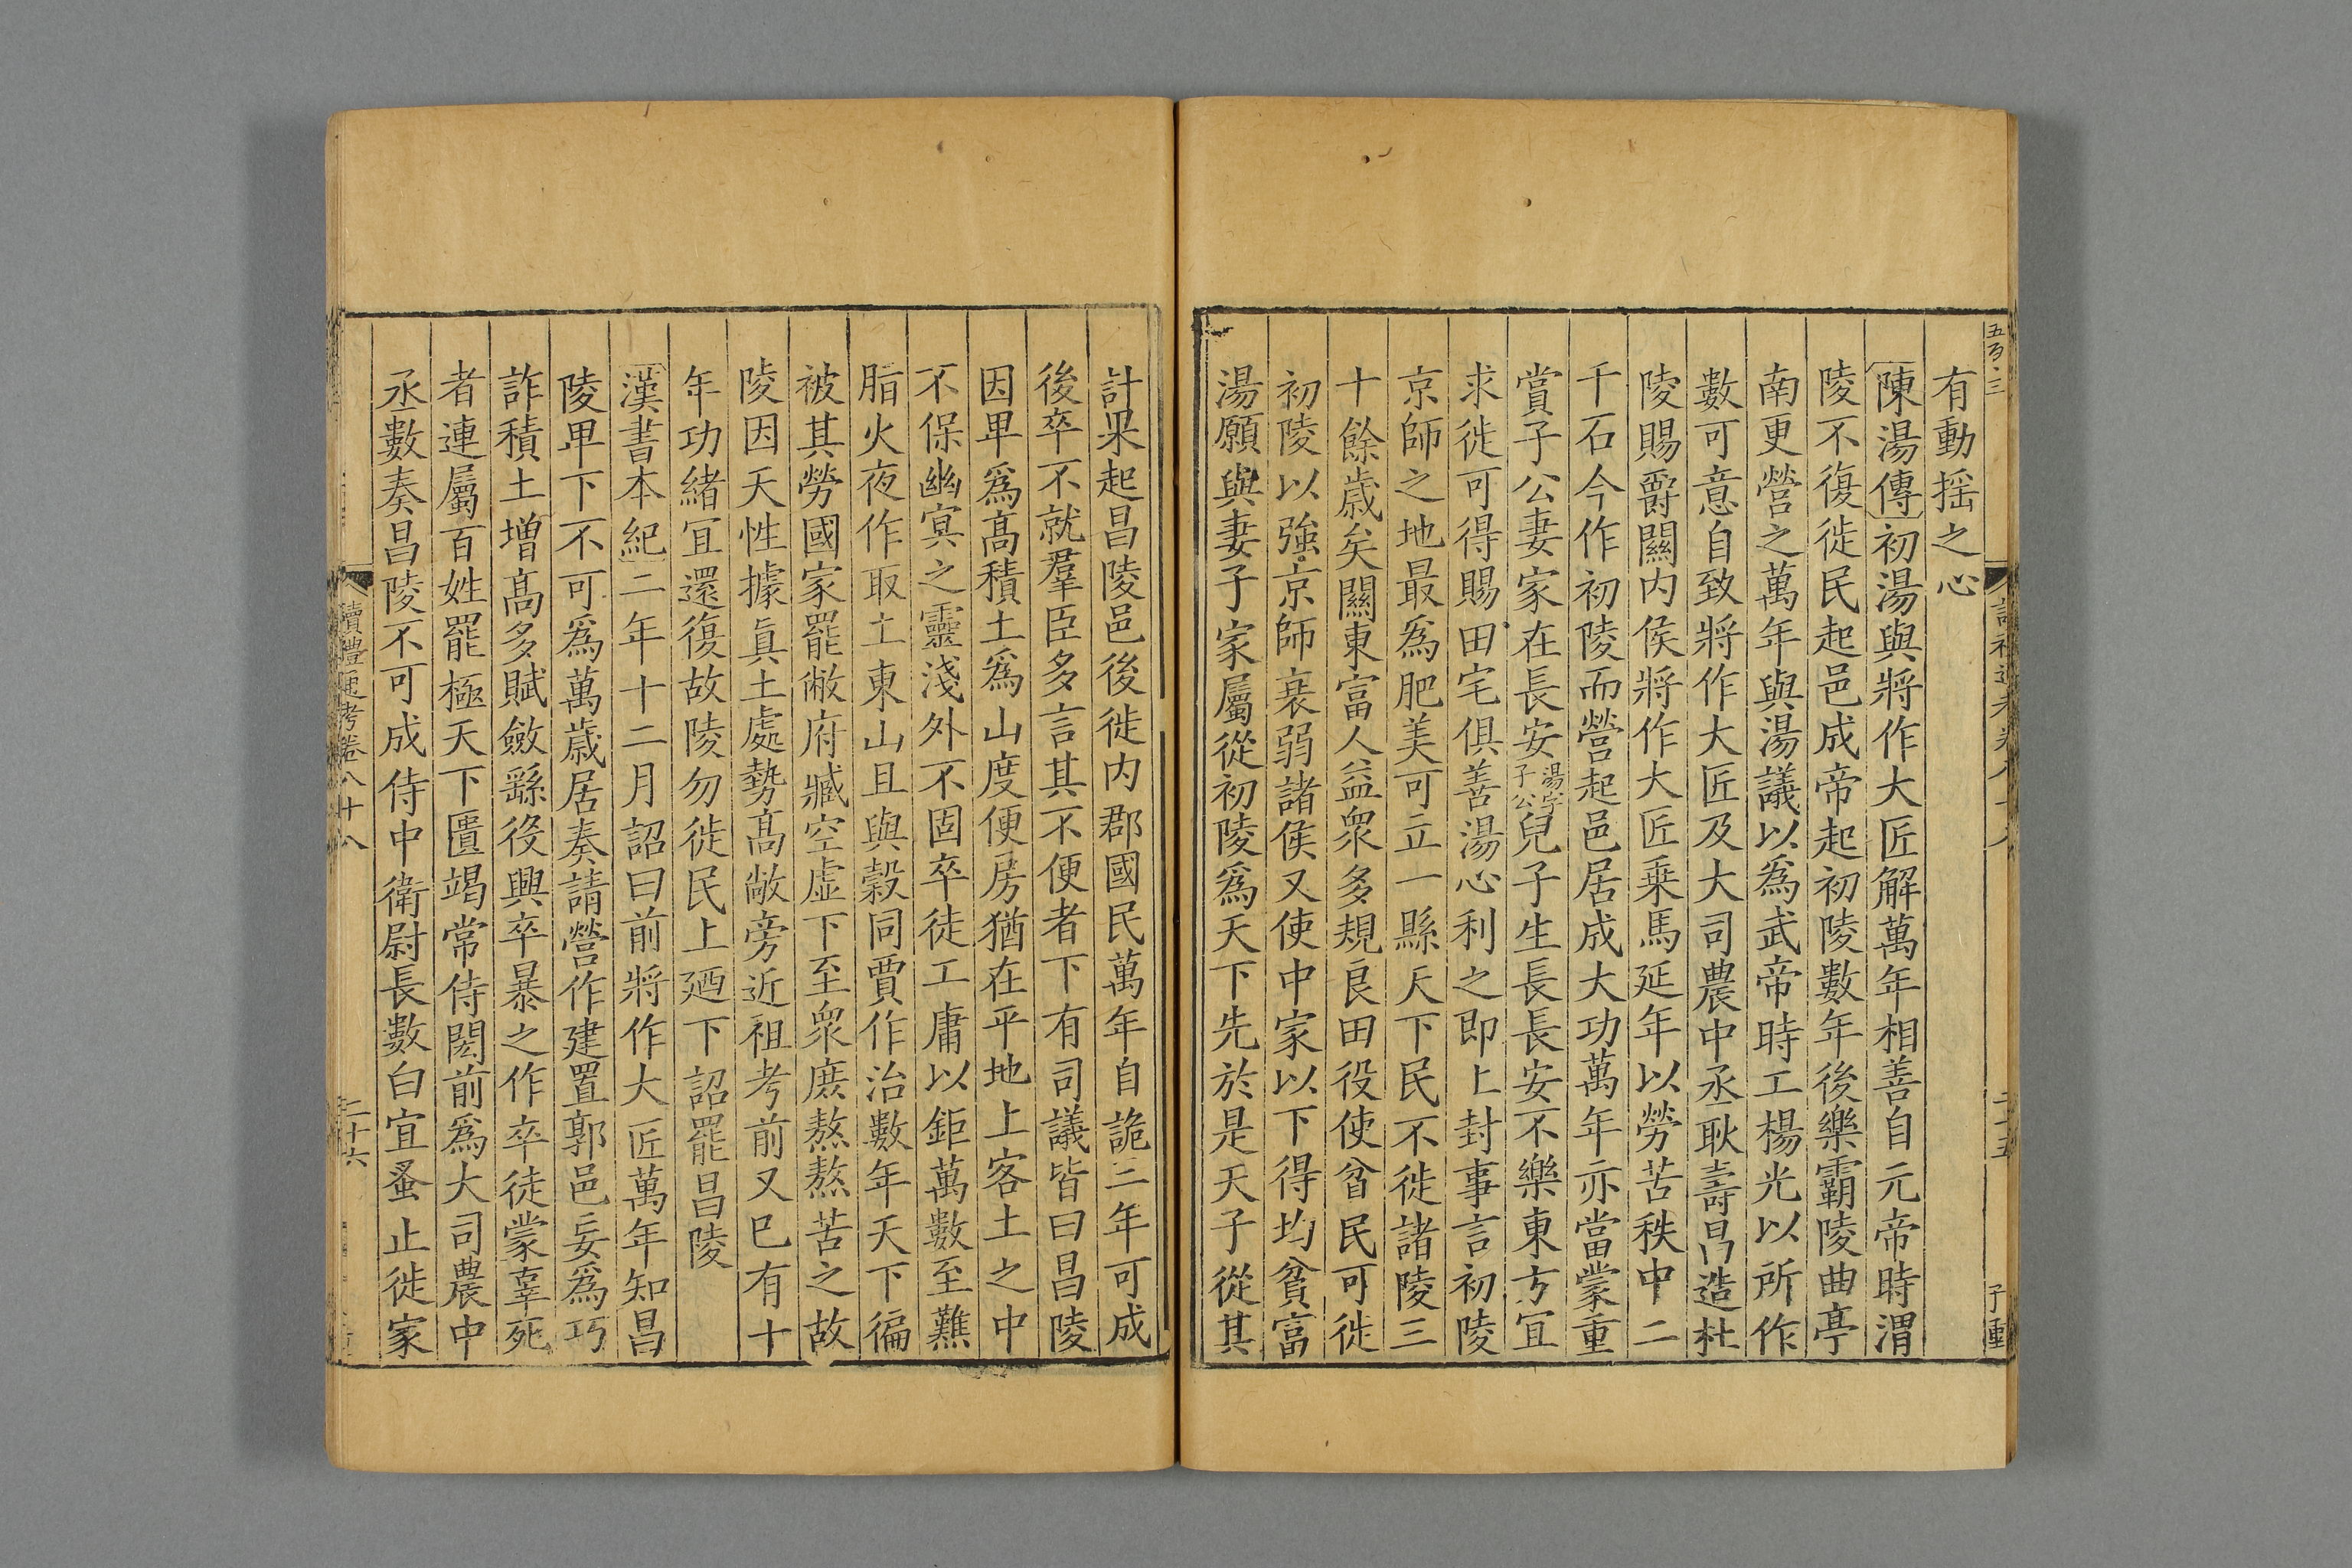 有動揺之心
陳湯傳初湯與將作大匠解萬年相善自元帝時渭
陵不復徙民起邑成帝起初陵數年後樂霸陵曲亭
南更營之萬年與湯議以爲武帝時工楊光以所作
數可意自致將作大匠及大司農中丞耿壽昌造杜
陵賜爵關内侯將作大匠乗馬延年以勞苦秩中二
千石今作初陵而營起邑居成大功萬年亦當蒙重
賞子公妻家在長安湯字子公兒子生長長安不樂東方宜
求徙可得賜田宅俱善湯心利之即上封事言初陵
京師之地最爲肥美可立一縣天下民不徙諸陵三
十餘歲矣關東富人益衆多規良田役使貧民可徙
初陵以強京師衰弱諸侯又使中家以下得均貧富
湯願與妻子家屬從初陵爲天下先於是天子從其
計果起昌陵邑後徙内郡國民萬年自詭三年可成
後卒不就羣臣多言其不便者下有司議皆曰昌陵
因卑爲髙積土爲山度便房猶在平地上客土之中
不保幽冥之靈淺外不固卒徒工庸以鉅萬數至難
脂火夜作取土東山且與穀同賈作治數年天下徧
被其勞國家罷敝府臧空虛下至衆庶熬熬苦之故
陵因天性據眞土處勢髙敞旁近祖考前又已有十
年功緒宜還復故陵勿徙民上廼下詔罷昌陵
漢書本紀二年十二月詔曰前將作大匠萬年知昌
陵卑下不可爲萬歲居奏請營作建置郭邑妄爲巧
詐積土增髙多賦斂繇役興卒暴之作卒徒蒙辜死
者連屬百姓罷極天下匱竭常侍閎前爲大司農中
丞數奏昌陵不可成侍中衛尉長數白宜蚤止徙家
讀禮通考卷八十八
二十六